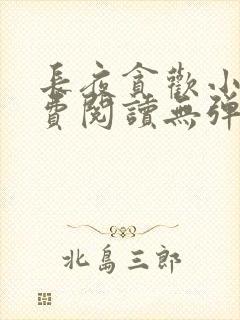 長夜貪歡小
費閱讀無彈
北島三郎